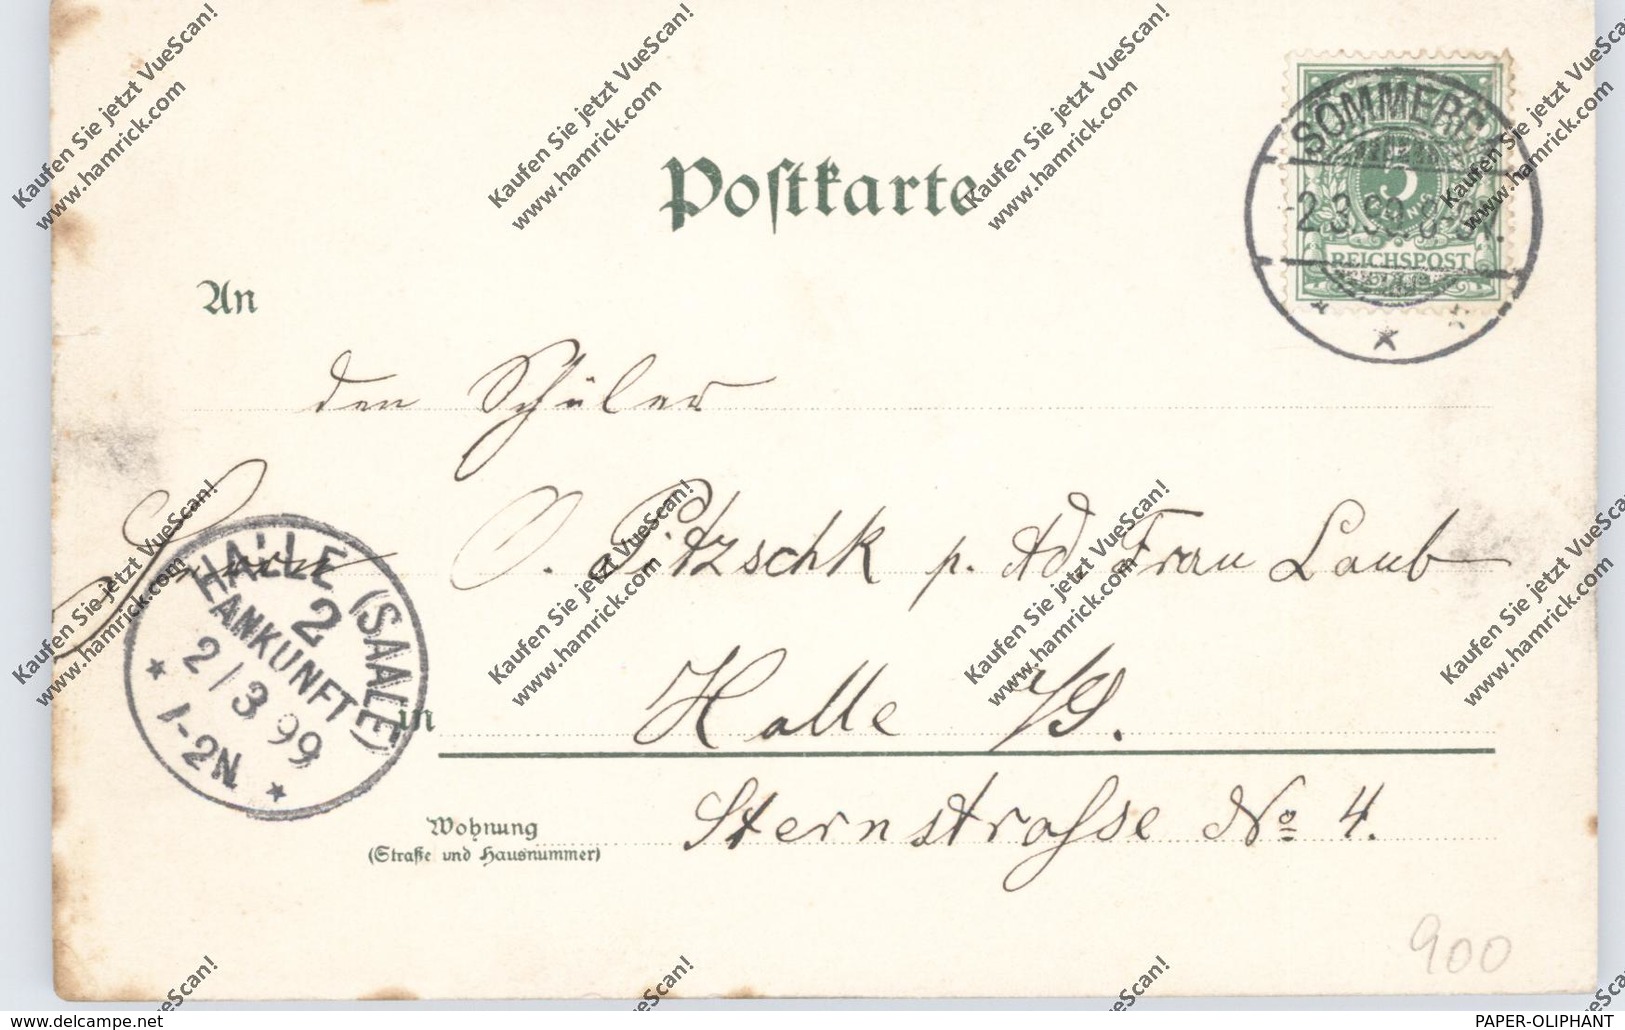 Postkarte
SÖMMERD
2.3.99. 8-9V.
REICHSPOST
5
An
den Schüler
Herrn O. Pitzschk p. Ad. Frau Laub
HALLE (SAALE)
2
ANKUNFT
2/3 99
1-2N.
in Halle a/S.
Wohnung
(Straße und Hausnummer)
Sternstrasse No 4.
900
Kaufen Sie jetzt VueScan!
www.hamrick.com
www.delcampe.net
PAPER-OLIPHANT